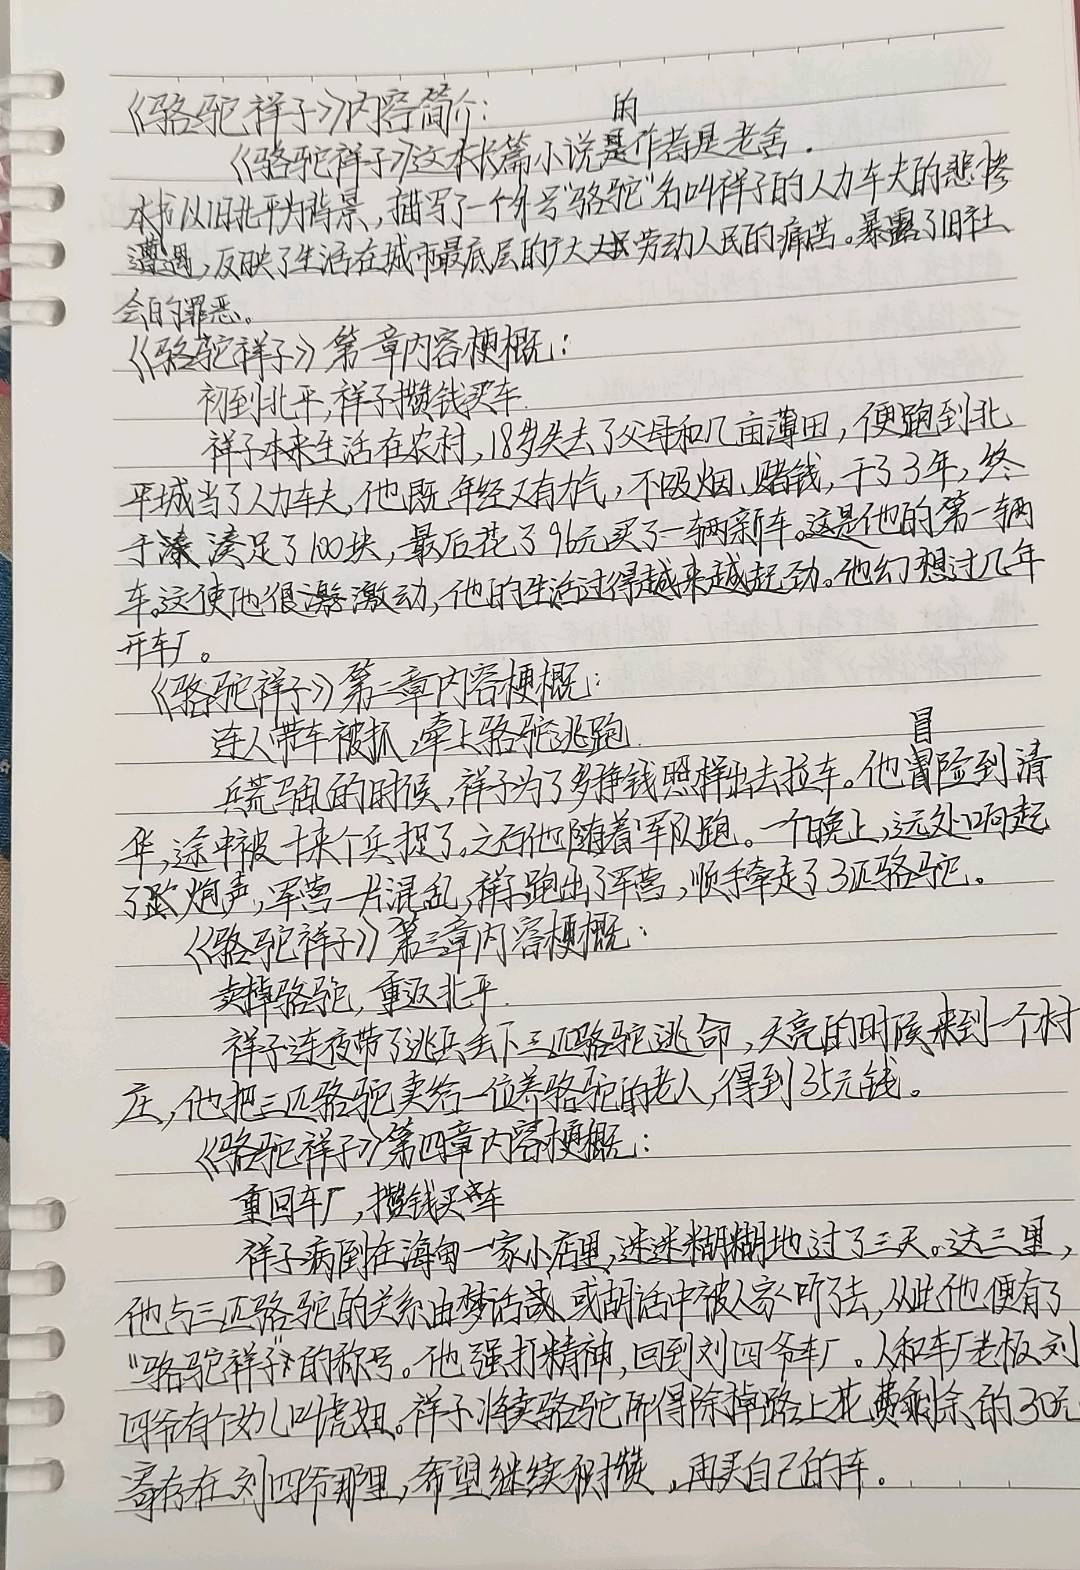 《骆驼祥子》内容简介:
的
《骆驼祥子》这本长篇小说是作者是老舍.
本书以旧北平为背景,描写了一个外号"骆驼"名叫祥子的人力车夫的悲惨
遭遇,反映了生活在城市最底层的广大劳动人民的痛苦。暴露了旧社
会的罪恶。
《骆驼祥子》第一章内容梗概:
初到北平,祥子攒钱买车.
祥子本来生活在农村,18岁失去了父母和几亩薄田,便跑到北
平城当了人力车夫,他既年经又有力气,不吸烟、赌钱,干了3年,终
于凑足了100块,最后花了96元买了一辆新车。这是他的第一辆
车。这使他很激动,他的生活过得越来越起劲。他幻想过几年
开车厂。
《骆驼祥子》第二章内容梗概:
连人带车被抓,牵上骆驼逃跑.
冒
兵荒马乱的时候,祥子为了多挣钱照样出去拉车。他冒险到清
华,途中被十来个兵捉了。之后他随着军队跑。一个晚上,远处响起
了炮声,军营一片混乱,祥子跑出了军营,顺手牵走了3匹骆驼。
《骆驼祥子》第三章内容梗概:
卖掉骆驼,重返北平.
祥子连夜带了逃兵丢下三匹骆驼逃命,天亮的时候来到一个村
庄,他把三匹骆驼卖给一位养骆驼的老人,得到35元钱。
《骆驼祥子》第四章内容梗概:
重回车厂,攒钱买车
祥子病倒在海甸一家小店里,迷迷糊糊地过了三天。这三里,
他与三匹骆驼的关系由梦话或胡话中被人家听了去,从此他便有了
"骆驼祥子"的称号。他强打精神,回到刘四爷车厂。人和车厂老板刘
四爷有个女儿叫虎妞。祥子将卖骆驼所得除掉路上花费剩余的30元
寄存在刘四爷那里,希望继续积攒,再买自己的车.